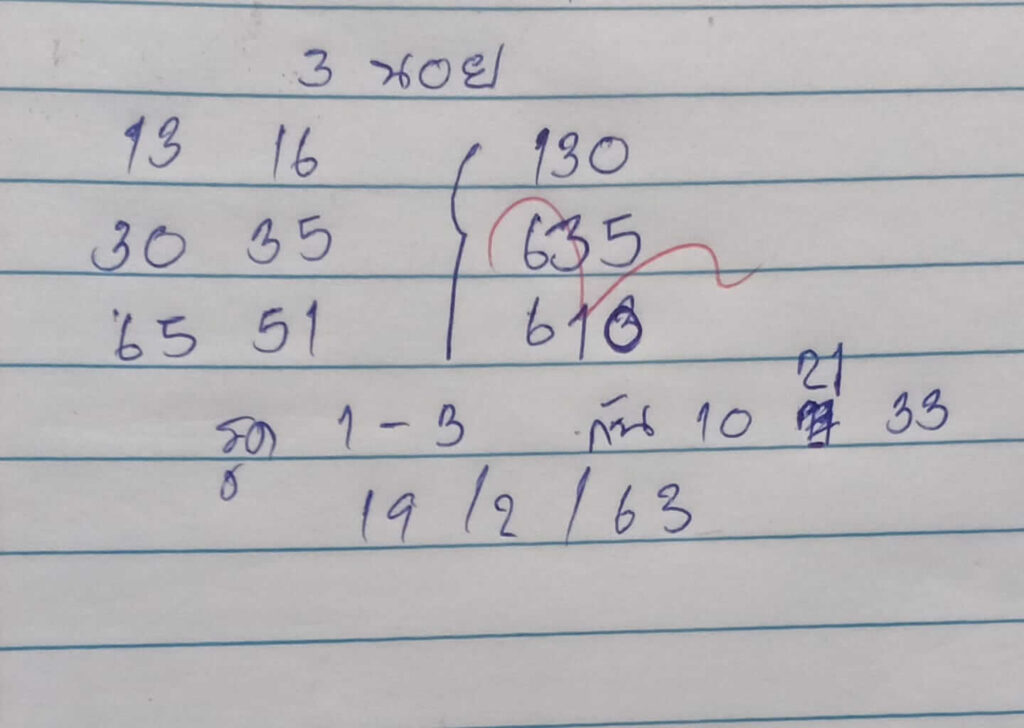 3 นอย
13 16 130
30 35 635
65 51 610
21
รูด 1 - 3 กัน 10 33
19 / 2 / 63